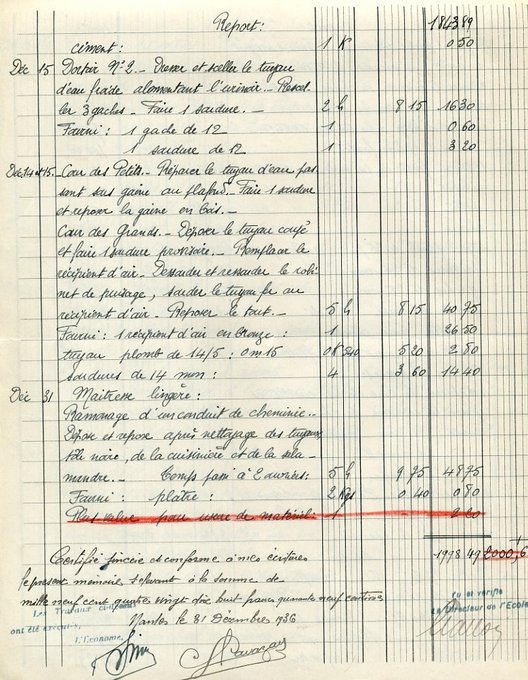 Report: 1843 89
ciment: 1 K 0 50
Déc 15 Dortoir N° 2._ Dresser et sceller le tuyau
d'eau froide alimentant l'urinoir._ Rescel-
ler 3 gaches._ Faire 1 soudure._ 2 h 8 15 16 30
Fourni: 1 gache de 12 1 0 60
1 soudure de 12 1 3 20
Déc 14 et 15._ Cour des Petits._ Préparer le tuyau d'eau pas-
sant sous gaine au Faire 1 soudure
et reposer la gaine en bois._
Cour des Grands._ Déposer le tuyau coupé
et faire 1 soudure provisoire._ Remplacer le
récipient d'air._ Dessouder et ressouder le robi-
net de puisage, souder le tuyau fer au
récipient d'air._ Reposer le tout._ 5 h 8 15 40 75
Fourni: 1 récipient d'air en bronze: 1 26 50
tuyau plomb de 14/5: 0m15 0K540 5 20 2 80
soudures de 14 mm: 4 3 60 14 40
Déc 31 Maitresse lingère:
Ramonage d'un conduit de cheminée._
Dépose et repose après nettoyage des tuyaux
tôle noire, de la cuisinière et de la sala-
mandre._ Temps passé à 2 ouvriers: 5 h 9 75 48 75
Fourni: plâtre: 2 Kgs 0 40 0 80
Plus value pour usure de matériel: 1 - 2 20
Certifié sincère et conforme à mes écritures 1998 49 2000,6
le présent mémoire s'élevant à la somme de
mille neuf cent quatre vingt dix huit francs quarante neuf centimes
Les Travaux ci-dessus
ont été exécutés,
Nantes le 31 Décembre 1936
L'Econome,
Vu et vérifié
Le Directeur de l'Ecole